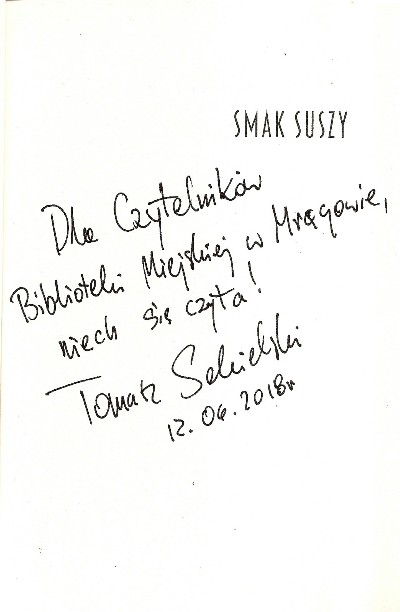 SMAK SUSZY
Dla Czytelników
Biblioteki Miejskiej w Mrągowie,
niech się czyta!
Tomasz Sekielski
12.06.2018r